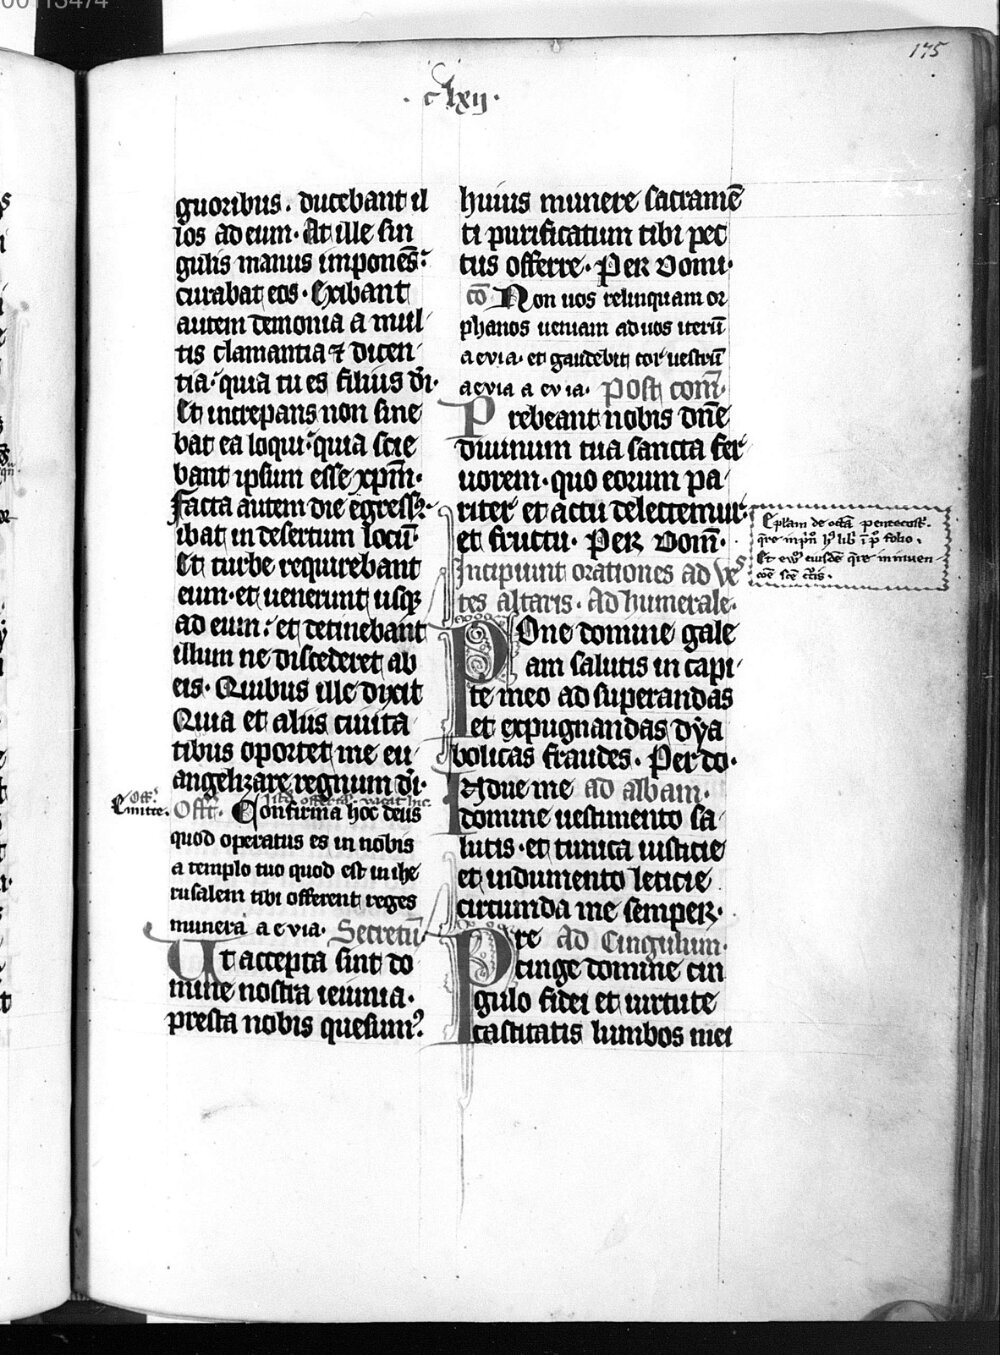 00113474
175
· c lxij ·
guoribus. ducebant il
los ad eum· At ille sin
gulis manus imponēs·
curabat eos· Exibant
autem demonia a mul
tis clamantia ⁊ dicen
tia· quia tu es filius dī·
Et increpans non sine
bat ea loqui· quia scie
bant ipsum esse xpm̄·
facta autem die egress9·
ibat in desertum locū·
Et turbe requirebant
eum· et uenerunt usqꝫ
ad eum· et detinebant
illum ne discederet ab
eis· Quibus ille dixit
Quia et aliis ciuita
tibus oportet me eu
angelizare regnum dī·
Off.
Emitte·
Off̄· Confirma hoc deus
quod operatus es in nobis
a templo tuo quod est in ihe
rusalem tibi offerent reges
munera aeuia· Secretū·
Ut accepta sint do
mine nostra ieiunia·
presta nobis quesum9
huius munere sacramē
ti purificatum tibi pec
tus offerre· Per domi·
cō Non uos relinquam or
phanos ueniam ad uos iterū
aeuia· et gaudebit cor uestrū
aeuia aeuia· Post com̄·
Prebeant nobis dn̄e
diuinum tua sancta fer
uorem· quo eorum pa
riter et actu delectemur
et fructu· Per dom̄·
Incipiunt orationes ad ves
tes altaris· Ad humerale·
Pone domine gale
am salutis in capi
te meo ad superandas
et expugnandas dya
bolicas fraudes· Per do·
Indue me ad albam·
domine uestimento sa
lutis· et tunica iusticie
et indumento leticie
circumda me semper·
Pre Ad Cingulum·
cinge domine cin
gulo fidei et uirtute
castitatis lumbos mei
Ep̄lam de octā pentecost·
folio·